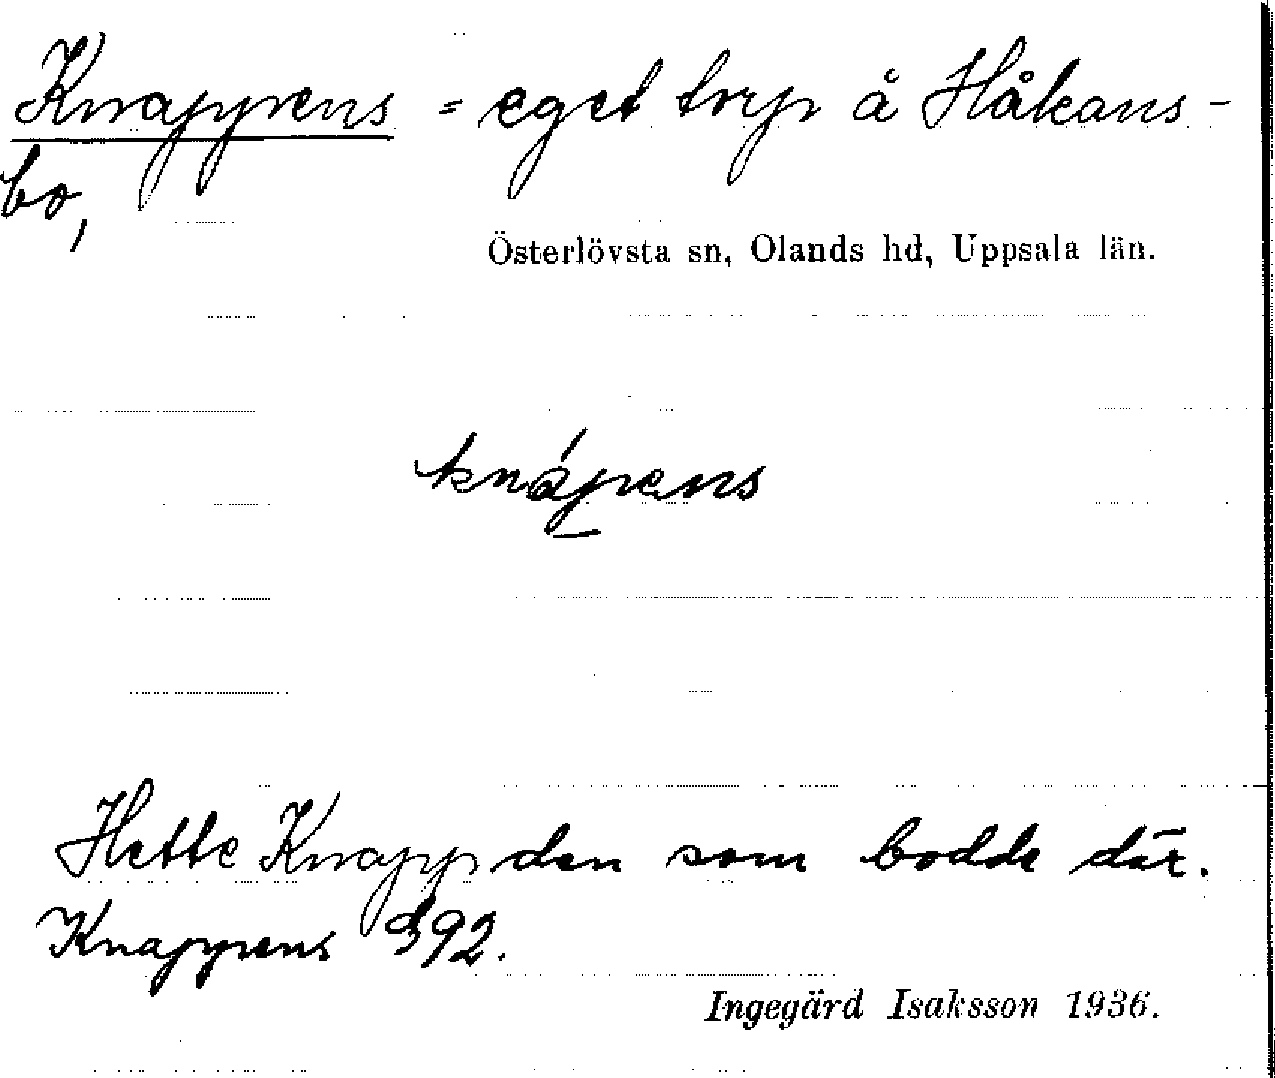 Knappens = eget trp å Håkans-
bo,
Österlövsta sn, Olands hd, Uppsala län.
knápens
Hette Knapp den som bodde där.
Knappens 392.
Ingegärd Isaksson 1936.